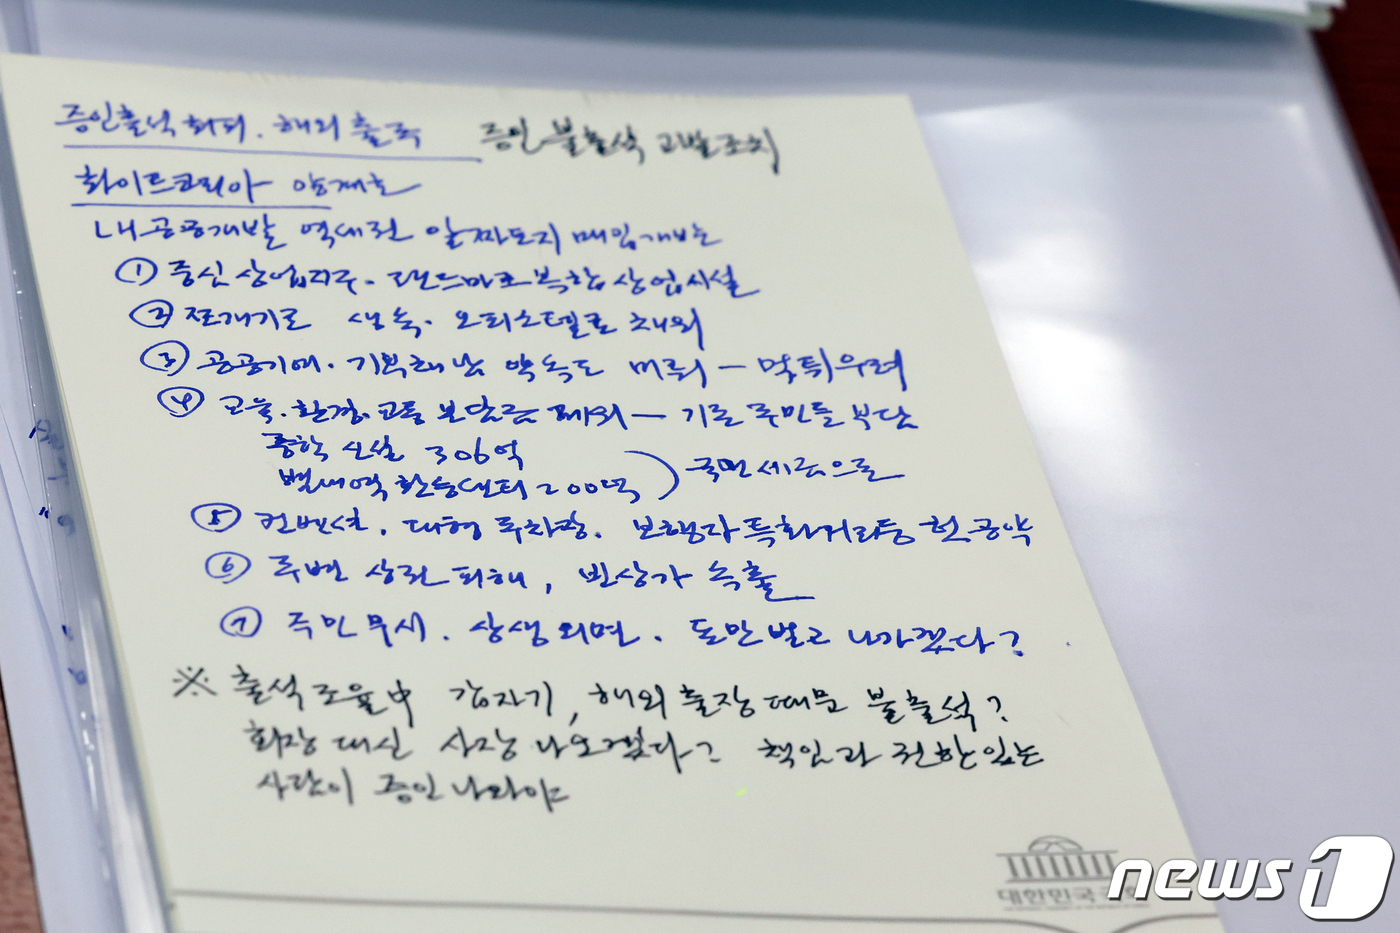 증인출석 회피. 해외 출국 증인 불출석 고발조치
화이트코리아 양재호
ㄴ 공공개발 역세권 알짜토지 매입개발
① 중심 상업지구. 랜드마크 복합 상업시설
② 쪼개기로 생숙. 오피스텔로
③ 공공기여. 기부채납 약속도 미뤄 – 먹튀우려
④ 교육. 환경. 교통 부담금 제외 – 기존 주민들 부담
중학 신설 306억
환승센터 200억 ) 국민세금으로
⑤ 컨벤션. 대형 주차장. 보행자 특화거리등 헛공약
⑥ 주변 상권 피해, 빈상가 속출
⑦ 주민 무시. 상생 외면. 돈만 벌고 나가겠다?
※ 출석 조율中 갑자기, 해외 출장 때문 불출석?
회장 대신 사장 나오겠다? 책임과 권한 있는
사람이 증인 나와야
대한민국국회
news1